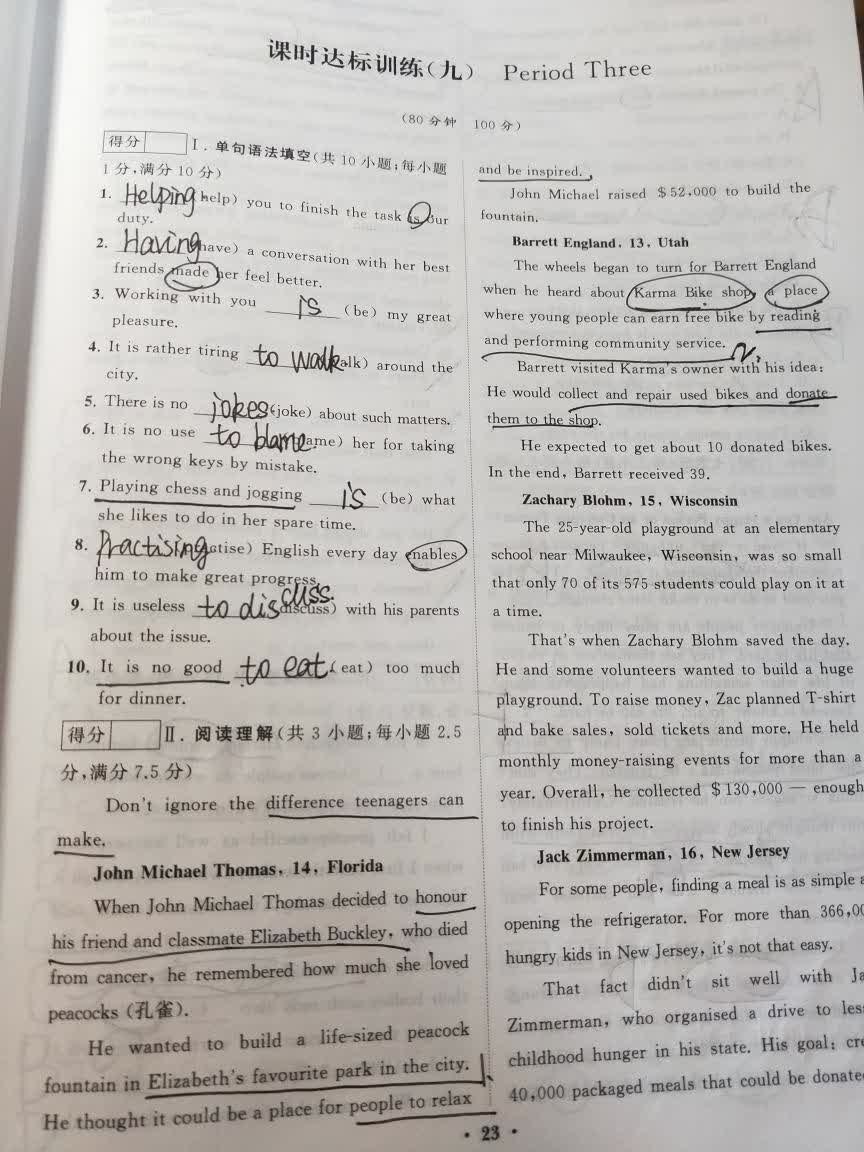 课时达标训练(九) Period Three
(80分钟 100分)
得分 Ⅰ.单句语法填空(共10小题;每小题
1分,满分10分)
1. Helping help) you to finish the task is our
duty.
2. Having have) a conversation with her best
friends made her feel better.
3. Working with you is (be) my great
pleasure.
4. It is rather tiring to walk alk) around the
city.
5. There is no jokes (joke) about such matters.
6. It is no use to blame ame) her for taking
the wrong keys by mistake.
7. Playing chess and jogging is (be) what
she likes to do in her spare time.
8. Practising ctise) English every day enables
him to make great progress.
9. It is useless to discuss discuss) with his parents
about the issue.
10. It is no good to eat (eat) too much
for dinner.
得分 Ⅱ.阅读理解(共3小题;每小题2.5
分,满分7.5分)
Don't ignore the difference teenagers can
make.
John Michael Thomas, 14, Florida
When John Michael Thomas decided to honour
his friend and classmate Elizabeth Buckley, who died
from cancer, he remembered how much she loved
peacocks (孔雀).
He wanted to build a life-sized peacock
fountain in Elizabeth's favourite park in the city.
He thought it could be a place for people to relax
and be inspired.
John Michael raised $52,000 to build the
fountain.
Barrett England, 13, Utah
The wheels began to turn for Barrett England
when he heard about Karma Bike shop, a place
where young people can earn free bike by reading
and performing community service.
Barrett visited Karma's owner with his idea:
He would collect and repair used bikes and donate
them to the shop.
He expected to get about 10 donated bikes.
In the end, Barrett received 39.
Zachary Blohm, 15, Wisconsin
The 25-year-old playground at an elementary
school near Milwaukee, Wisconsin, was so small
that only 70 of its 575 students could play on it at
a time.
That's when Zachary Blohm saved the day.
He and some volunteers wanted to build a huge
playground. To raise money, Zac planned T-shirt
and bake sales, sold tickets and more. He held
monthly money-raising events for more than a
year. Overall, he collected $130,000 — enough
to finish his project.
Jack Zimmerman, 16, New Jersey
For some people, finding a meal is as simple a
opening the refrigerator. For more than 366,00
hungry kids in New Jersey, it's not that easy.
That fact didn't sit well with Ja
Zimmerman, who organised a drive to les
childhood hunger in his state. His goal: cre
40,000 packaged meals that could be donate
· 23 ·